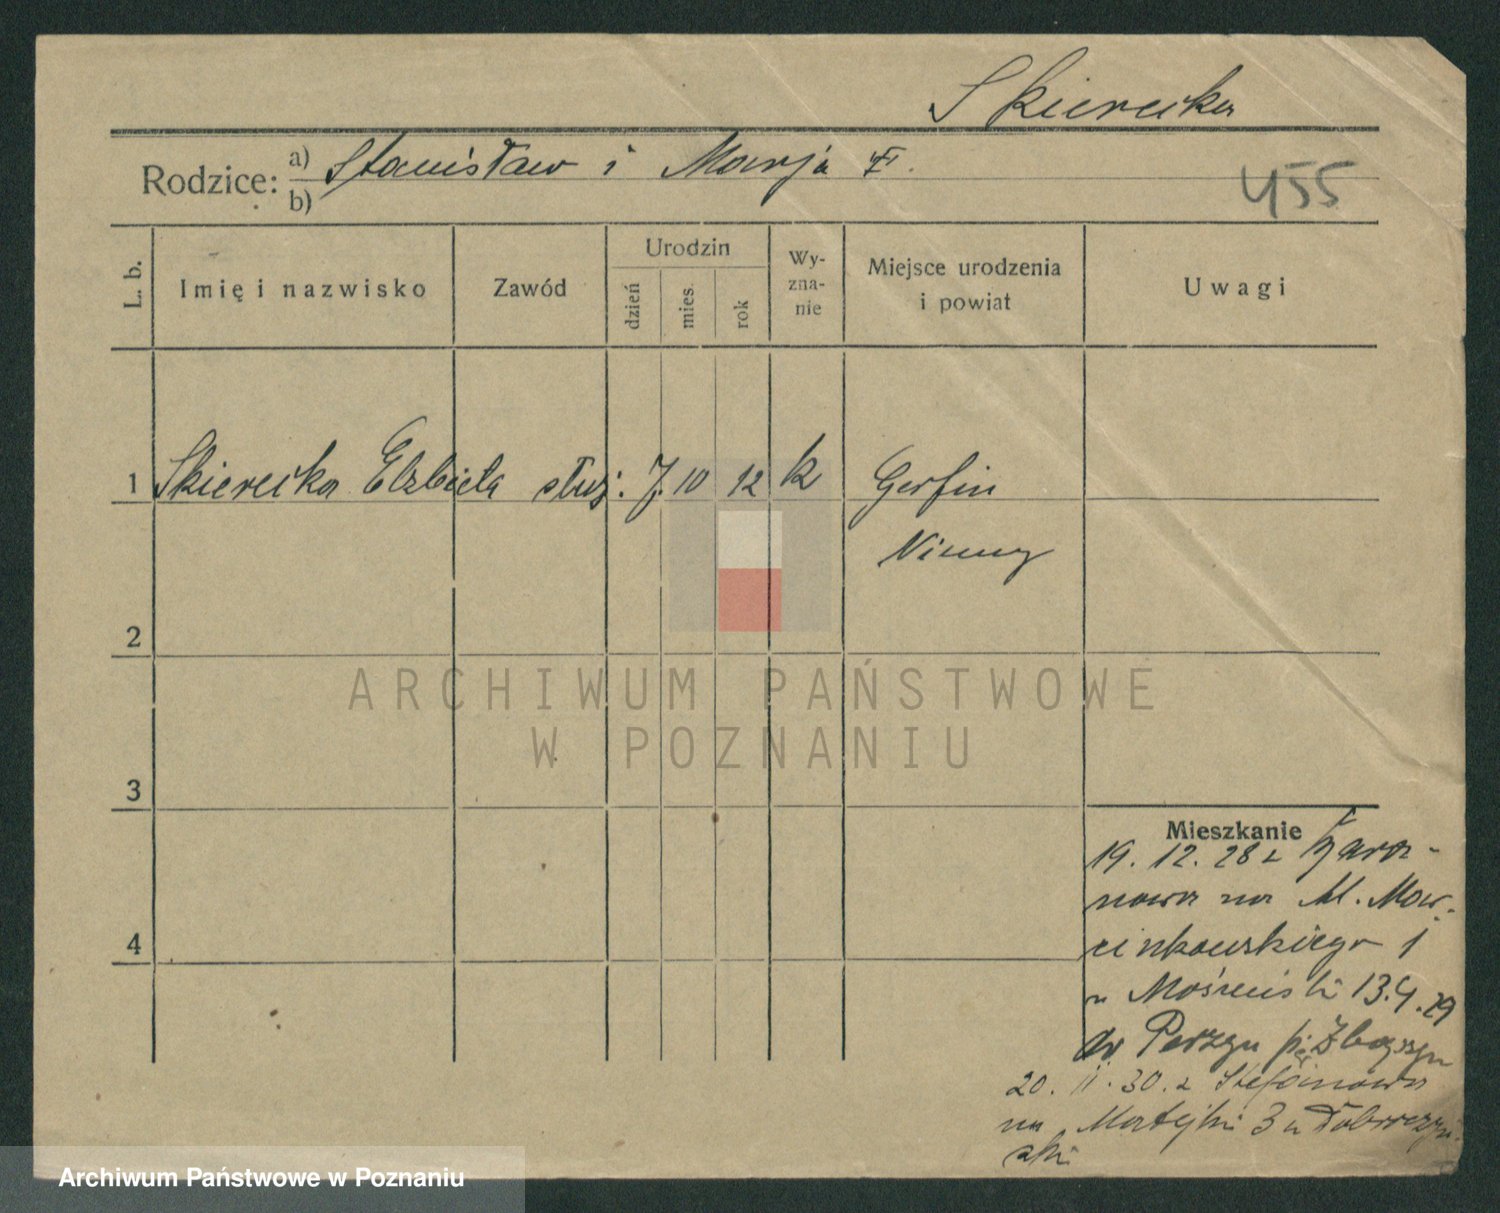 Skierecka
Rodzice: a) Stanisław i Marja
b)
455
L. b.
Imię i nazwisko
Zawód
Urodzin
dzień
mies.
rok
Wy-
zna-
nie
Miejsce urodzenia
i powiat
Uwagi
1 Skierecka Elzbieta służ. 7. 10 12 k Gerfin
2
3
4
Mieszkanie
19. 12. 28 z
nowa na Al. Mar-
cinkowskiego 1
u Mościcki 13.4.29
do Perzyn p. Zbąszyn
20. 11. 30. z Stefanowa
na Matejki 3 u
ski
ARCHIWUM PAŃSTWOWE
W POZNANIU
Archiwum Państwowe w Poznaniu